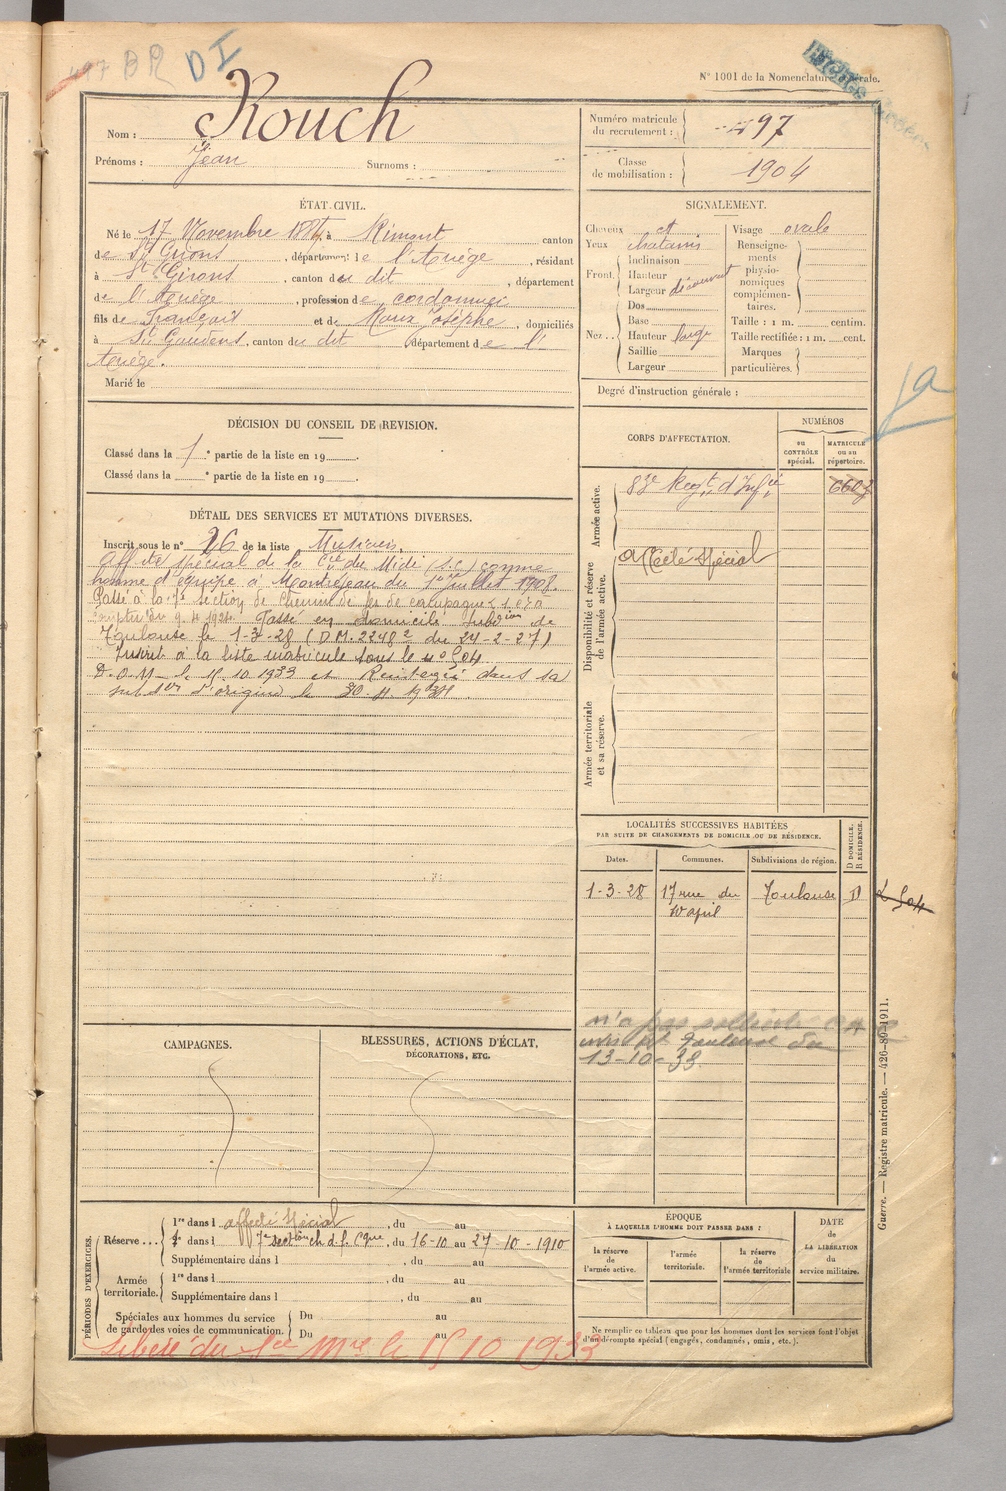 497 BR DI
N° 1001 de la Nomenclature générale.
Nom : Rouch
Prénoms : Jean Surnoms :
Numéro matricule du recrutement : 497
Classe de mobilisation : 1904
ÉTAT CIVIL.
Né le 17 Novembre 1884, à Rimont canton
de St Girons, département de l'Ariège, résidant
à St Girons, canton du dit, département
de l'Ariège, profession de cordonnier
fils de François et de Roux Josèphe, domiciliés
à St Gaudens, canton du dit département de l'
Ariège.
Marié le
SIGNALEMENT.
Cheveux et
Yeux chatains
Front Inclinaison
Hauteur
Largeur découvert
Nez Dos
Base
Hauteur large
Saillie
Largeur
Visage ovale
Renseignements physionomiques complémentaires.
Taille : 1 m. centim.
Taille rectifiée : 1 m. cent.
Marques particulières.
Degré d'instruction générale :
ja
DÉCISION DU CONSEIL DE REVISION.
Classé dans la 1e partie de la liste en 19
Classé dans la e partie de la liste en 19
CORPS D'AFFECTATION.
NUMÉROS
au CONTRÔLE spécial.
MATRICULE ou au répertoire.
Armée active.
83e Regt d'Infie 6603
Disponibilité et réserve de l'armée active.
affecté spécial
Armée territoriale et sa réserve.
DÉTAIL DES SERVICES ET MUTATIONS DIVERSES.
Inscrit sous le n° 26 de la liste
Affecté spécial de la Cie du Midi (s.c) comme
homme d'équipe à Montrejeau du 1er juillet 1908.
Passé à la 7e section de chemin de fer de campagne
compter du 9.4 1924. Passé en domicile Subdion de
Toulouse le 1-3-28 (DM. 2248 2 du 24-2-27)
Inscrit à la liste matricule sous le n° 504
D.O.M le 15.10.1933 et Réintégré dans sa
subdon d'origine le
LOCALITÉS SUCCESSIVES HABITÉES
PAR SUITE DE CHANGEMENTS DE DOMICILE OU DE RÉSIDENCE.
Dates. Communes. Subdivisions de région. D DOMICILE. R RÉSIDENCE.
1-3-28 17 rue du Toulouse D L 504
10 april
n'a pas
Toulouse du
13-10-33
CAMPAGNES.
BLESSURES, ACTIONS D'ÉCLAT, DÉCORATIONS, ETC.
PÉRIODES D'EXERCICES.
Réserve... 1re dans l affecté spécial, du au
2e dans l 7e section ch. d. f. Cgne, du 16-10 au 27-10-1910
Supplémentaire dans l , du au
Armée territoriale. 1re dans l , du au
Supplémentaire dans l , du au
Spéciales aux hommes du service de garde des voies de communication. Du au
Du au
Libéré du Sce Mre le 15 10 1933
ÉPOQUE
À LAQUELLE L'HOMME DOIT PASSER DANS :
la réserve de l'armée active.
l'armée territoriale.
la réserve de l'armée territoriale
DATE DE LA LIBÉRATION du service militaire.
Ne remplir ce tableau que pour les hommes dont les services font l'objet
d'un décompte spécial (engagés, condamnés, omis, etc.).
Guerre. — Registre matricule. — 426-89-1911.